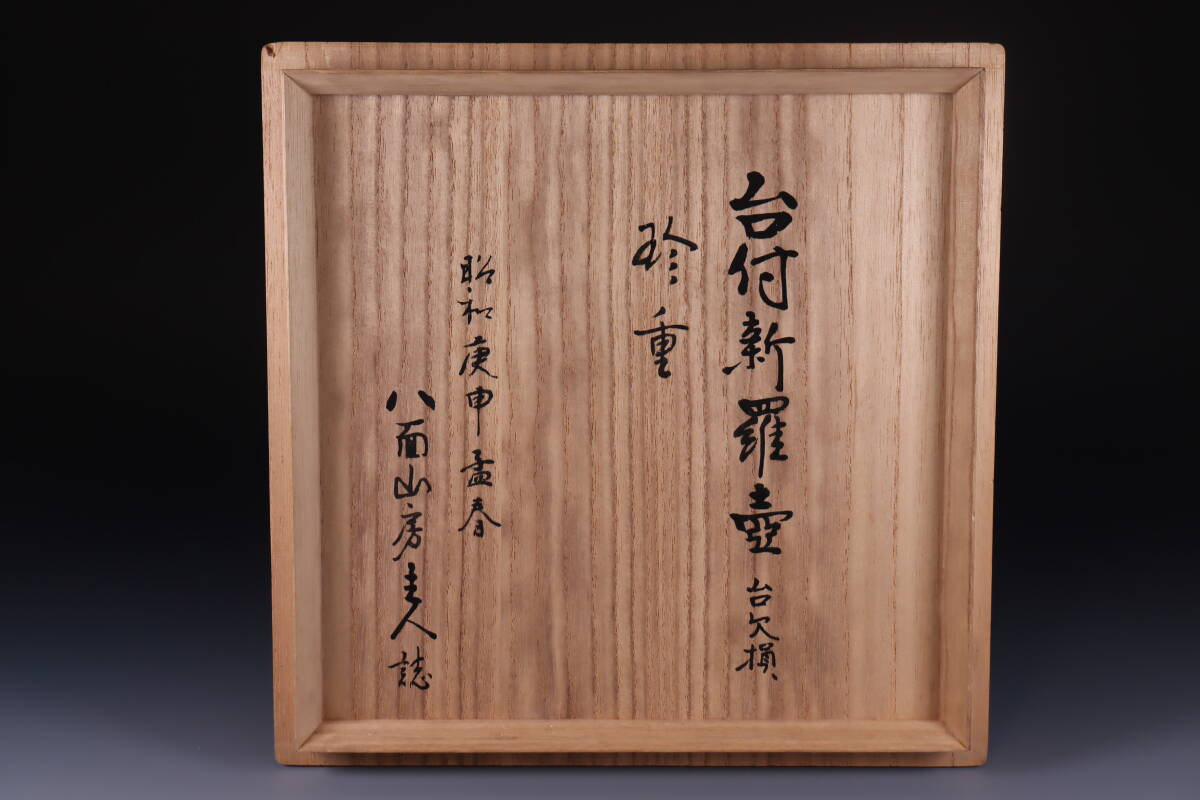 台付新羅壺 台欠損
珍重
昭和庚申孟春
八面山房主人誌